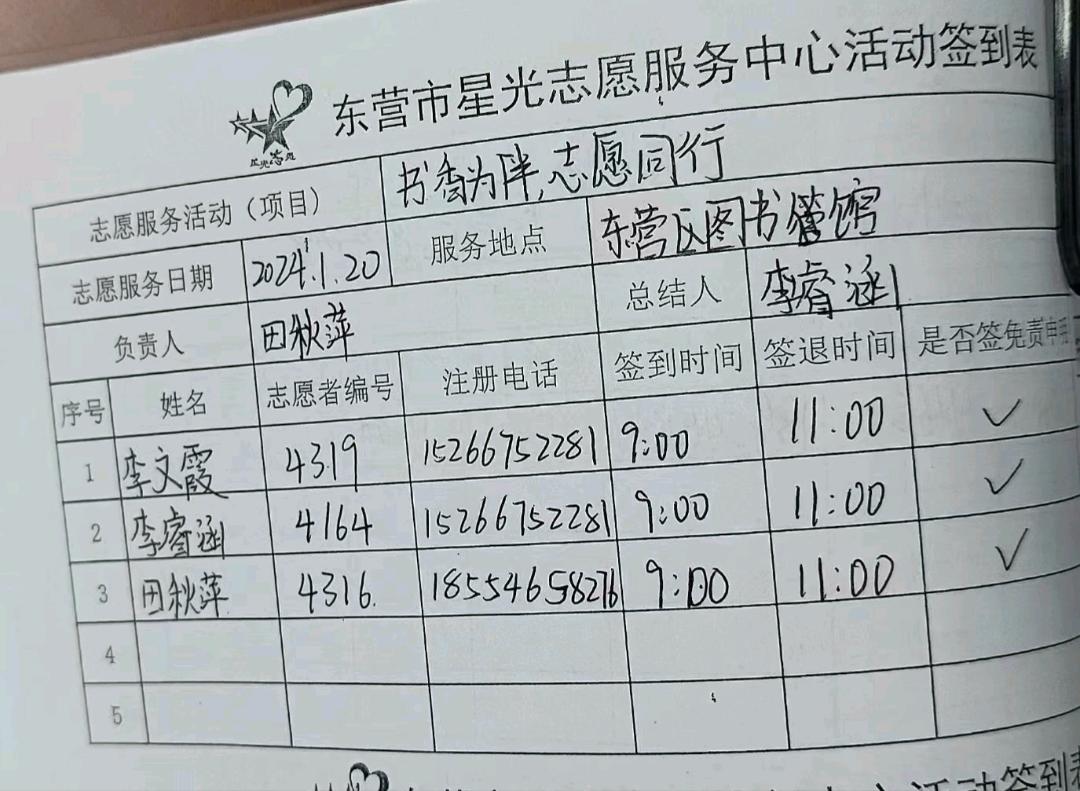 东营市星光志愿服务中心活动签到表
星光志愿
志愿服务活动（项目） 书香为伴,志愿同行
志愿服务日期 2024.1.20 服务地点 东营区图书馆
负责人 田秋萍 总结人 李睿涵
序号 姓名 志愿者编号 注册电话 签到时间 签退时间 是否签免责申明
1 李文霞 4319 15266752281 9:00 11:00 ✓
2 李睿涵 4164 15266752281 9:00 11:00 ✓
3 田秋萍 4316 18554658276 9:00 11:00 ✓
4
5